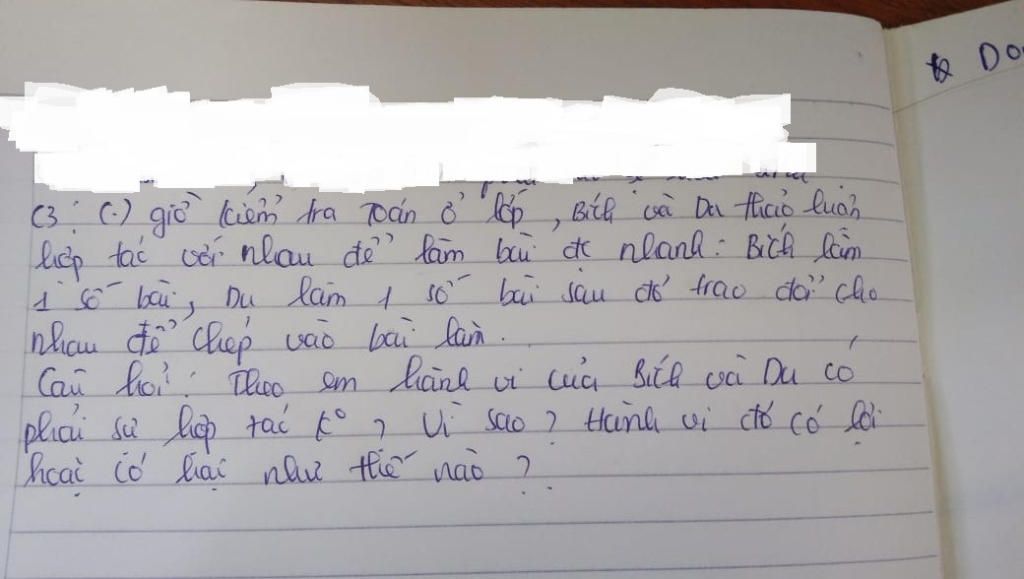 ☆ Do
C3: (.) giờ kiểm tra Toán ở lớp, Bích và Du thảo luận
hợp tác với nhau để làm bài đc nhanh: Bích làm
1 số bài, Du làm 1 số bài sau đó trao đổi cho
nhau để chép vào bài làm.
Câu hỏi: Theo em hành vi của Bích và Du có
phải sự hợp tác k°? Vì sao? Hành vi đó có lợi
hoặc có hại như thế nào?